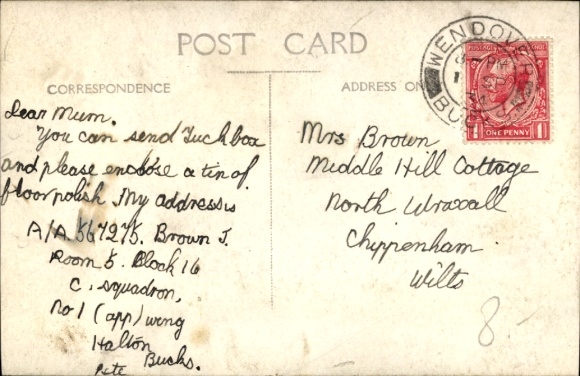 POST CARD
CORRESPONDENCE
ADDRESS ON
Dear Mum.
You can send Tuck box
and please enclose a tin of
floor polish My address is
A/A. 567275. Brown J.
Room 5. Block 16
C. Squadron,
No 1 (app) wing
Halton
Bucks.
Pete
Mrs Brown
Middle Hill Cottage
North Wraxall
Chippenham.
Wilts
8-
WENDOVER
BUC
PM
POSTAGE
ONE PENNY
1
1